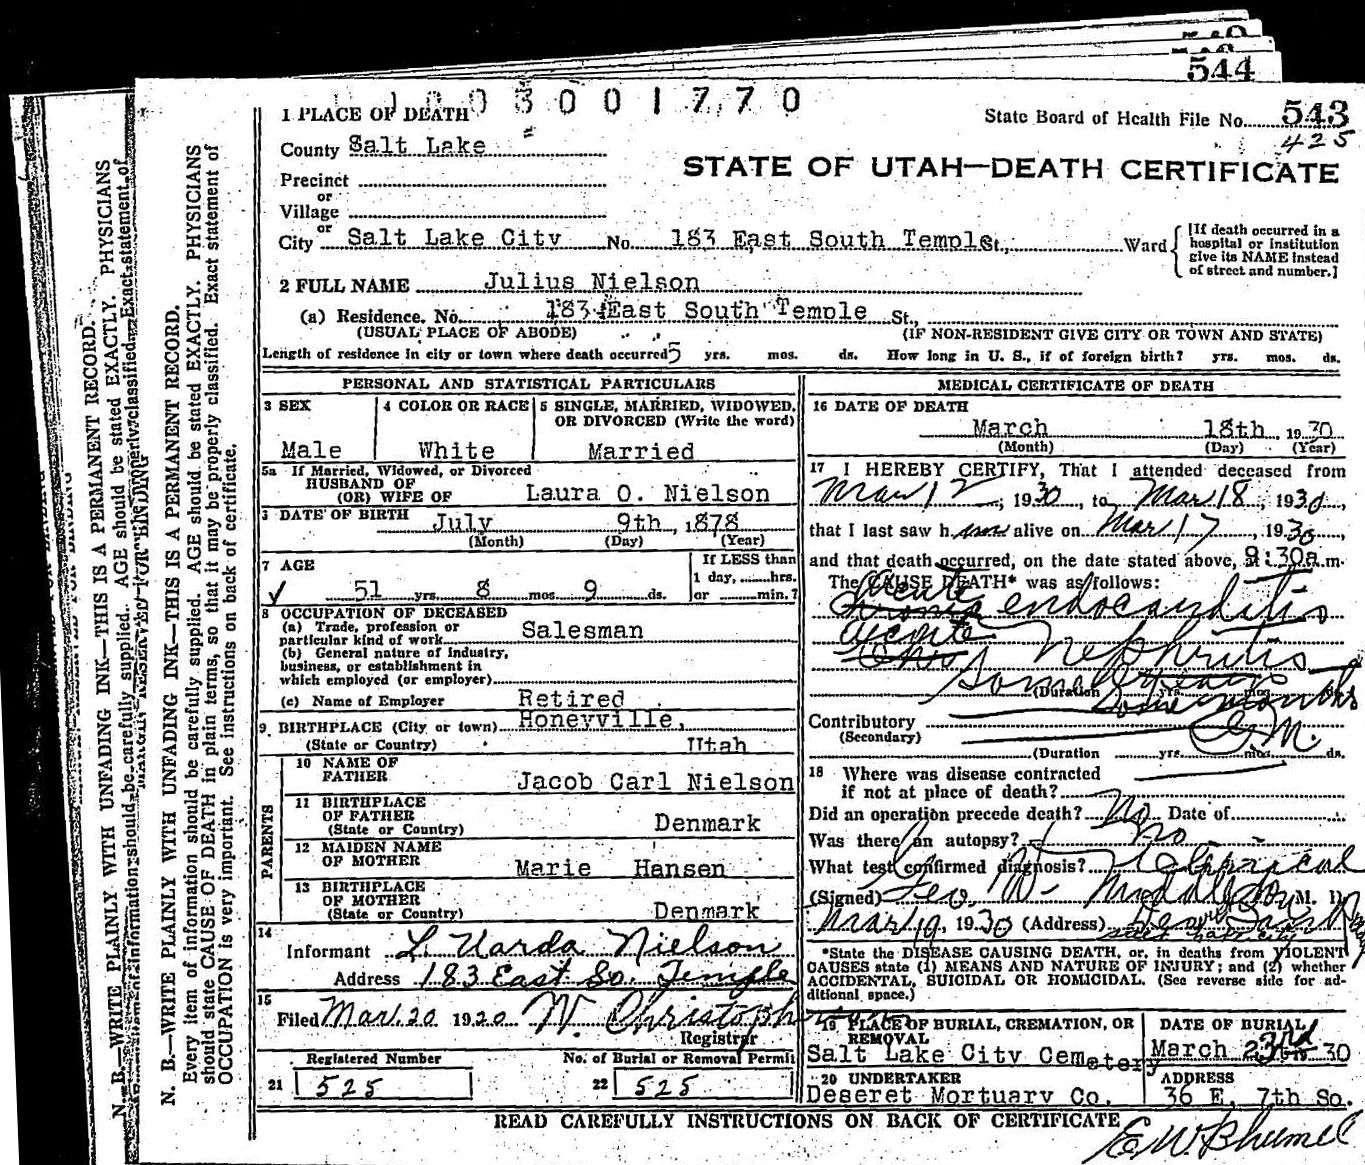 549
548
544
1003001770
State Board of Health File No. 543
425
STATE OF UTAH—DEATH CERTIFICATE
1 PLACE OF DEATH
County Salt Lake
Precinct
or
Village
or
City Salt Lake City No. 183 East South Temple St., Ward
[If death occurred in a hospital or institution give its NAME instead of street and number.]
2 FULL NAME Julius Nielson
(a) Residence. No. 183 East South Temple St.,
(USUAL PLACE OF ABODE) (IF NON-RESIDENT GIVE CITY OR TOWN AND STATE)
Length of residence in city or town where death occurred 5 yrs. mos. ds. How long in U. S., if of foreign birth? yrs. mos. ds.
PERSONAL AND STATISTICAL PARTICULARS
3 SEX
Male
4 COLOR OR RACE
White
5 SINGLE, MARRIED, WIDOWED, OR DIVORCED (Write the word)
Married
5a If Married, Widowed, or Divorced
HUSBAND OF
(OR) WIFE OF Laura O. Nielson
DATE OF BIRTH July 9th, 1878
(Month) (Day) (Year)
7 AGE
If LESS than
1 day, hrs.
or min.?
51 yrs. 8 mos. 9 ds.
8 OCCUPATION OF DECEASED
(a) Trade, profession or
particular kind of work Salesman
(b) General nature of industry,
business, or establishment in
which employed (or employer)
(c) Name of Employer Retired
9 BIRTHPLACE (City or town) Honeyville,
(State or Country) Utah
PARENTS
10 NAME OF
FATHER Jacob Carl Nielson
11 BIRTHPLACE
OF FATHER
(State or Country) Denmark
12 MAIDEN NAME
OF MOTHER Marie Hansen
13 BIRTHPLACE
OF MOTHER
(State or Country) Denmark
14
Informant L. Varda Nielson
Address 183 East So. Temple
15
Filed Mar. 20 1920 W. Christopherson
Registrar
Registered Number
21 525
No. of Burial or Removal Permit
22 525
MEDICAL CERTIFICATE OF DEATH
16 DATE OF DEATH
March 18th, 1930
(Month) (Day) (Year)
17 I HEREBY CERTIFY, That I attended deceased from
Mar 12, 1930, to Mar 18, 1930,
that I last saw him alive on Mar 17, 1930
and that death occurred, on the date stated above, at 9:30a.m.
The CAUSE DEATH* was as follows:
Acute
endocarditis
acute
Nephritis
Some years
(Duration yrs. mos. ds.
Some months
Contributory
(Secondary)
G M.
(Duration yrs. mos. ds.
18 Where was disease contracted
if not at place of death?
Did an operation precede death? No Date of
Was there an autopsy? No
What test confirmed diagnosis? Clinical
(Signed) Geo. W. Middleton M. D.
Mar 19, 1930 (Address)
*State the DISEASE CAUSING DEATH, or, in deaths from VIOLENT
CAUSES state (1) MEANS AND NATURE OF INJURY; and (2) whether
ACCIDENTAL, SUICIDAL OR HOMICIDAL. (See reverse side for ad-
ditional space.)
19 PLACE OF BURIAL, CREMATION, OR
REMOVAL
Salt Lake City Cemetery
DATE OF BURIAL
March 23rd 30
20 UNDERTAKER
Deseret Mortuary Co.
ADDRESS
36 E. 7th So.
READ CAREFULLY INSTRUCTIONS ON BACK OF CERTIFICATE
N. B.—WRITE PLAINLY WITH UNFADING INK—THIS IS A PERMANENT RECORD.
Every item of information should be carefully supplied. AGE should be stated EXACTLY. PHYSICIANS
should state CAUSE OF DEATH in plain terms, so that it may be properly classified. Exact statement of
OCCUPATION is very important. See instructions on back of certificate.
N. B.—WRITE PLAINLY WITH UNFADING INK—THIS IS A PERMANENT RECORD.
MARGIN RESERVED FOR BINDING